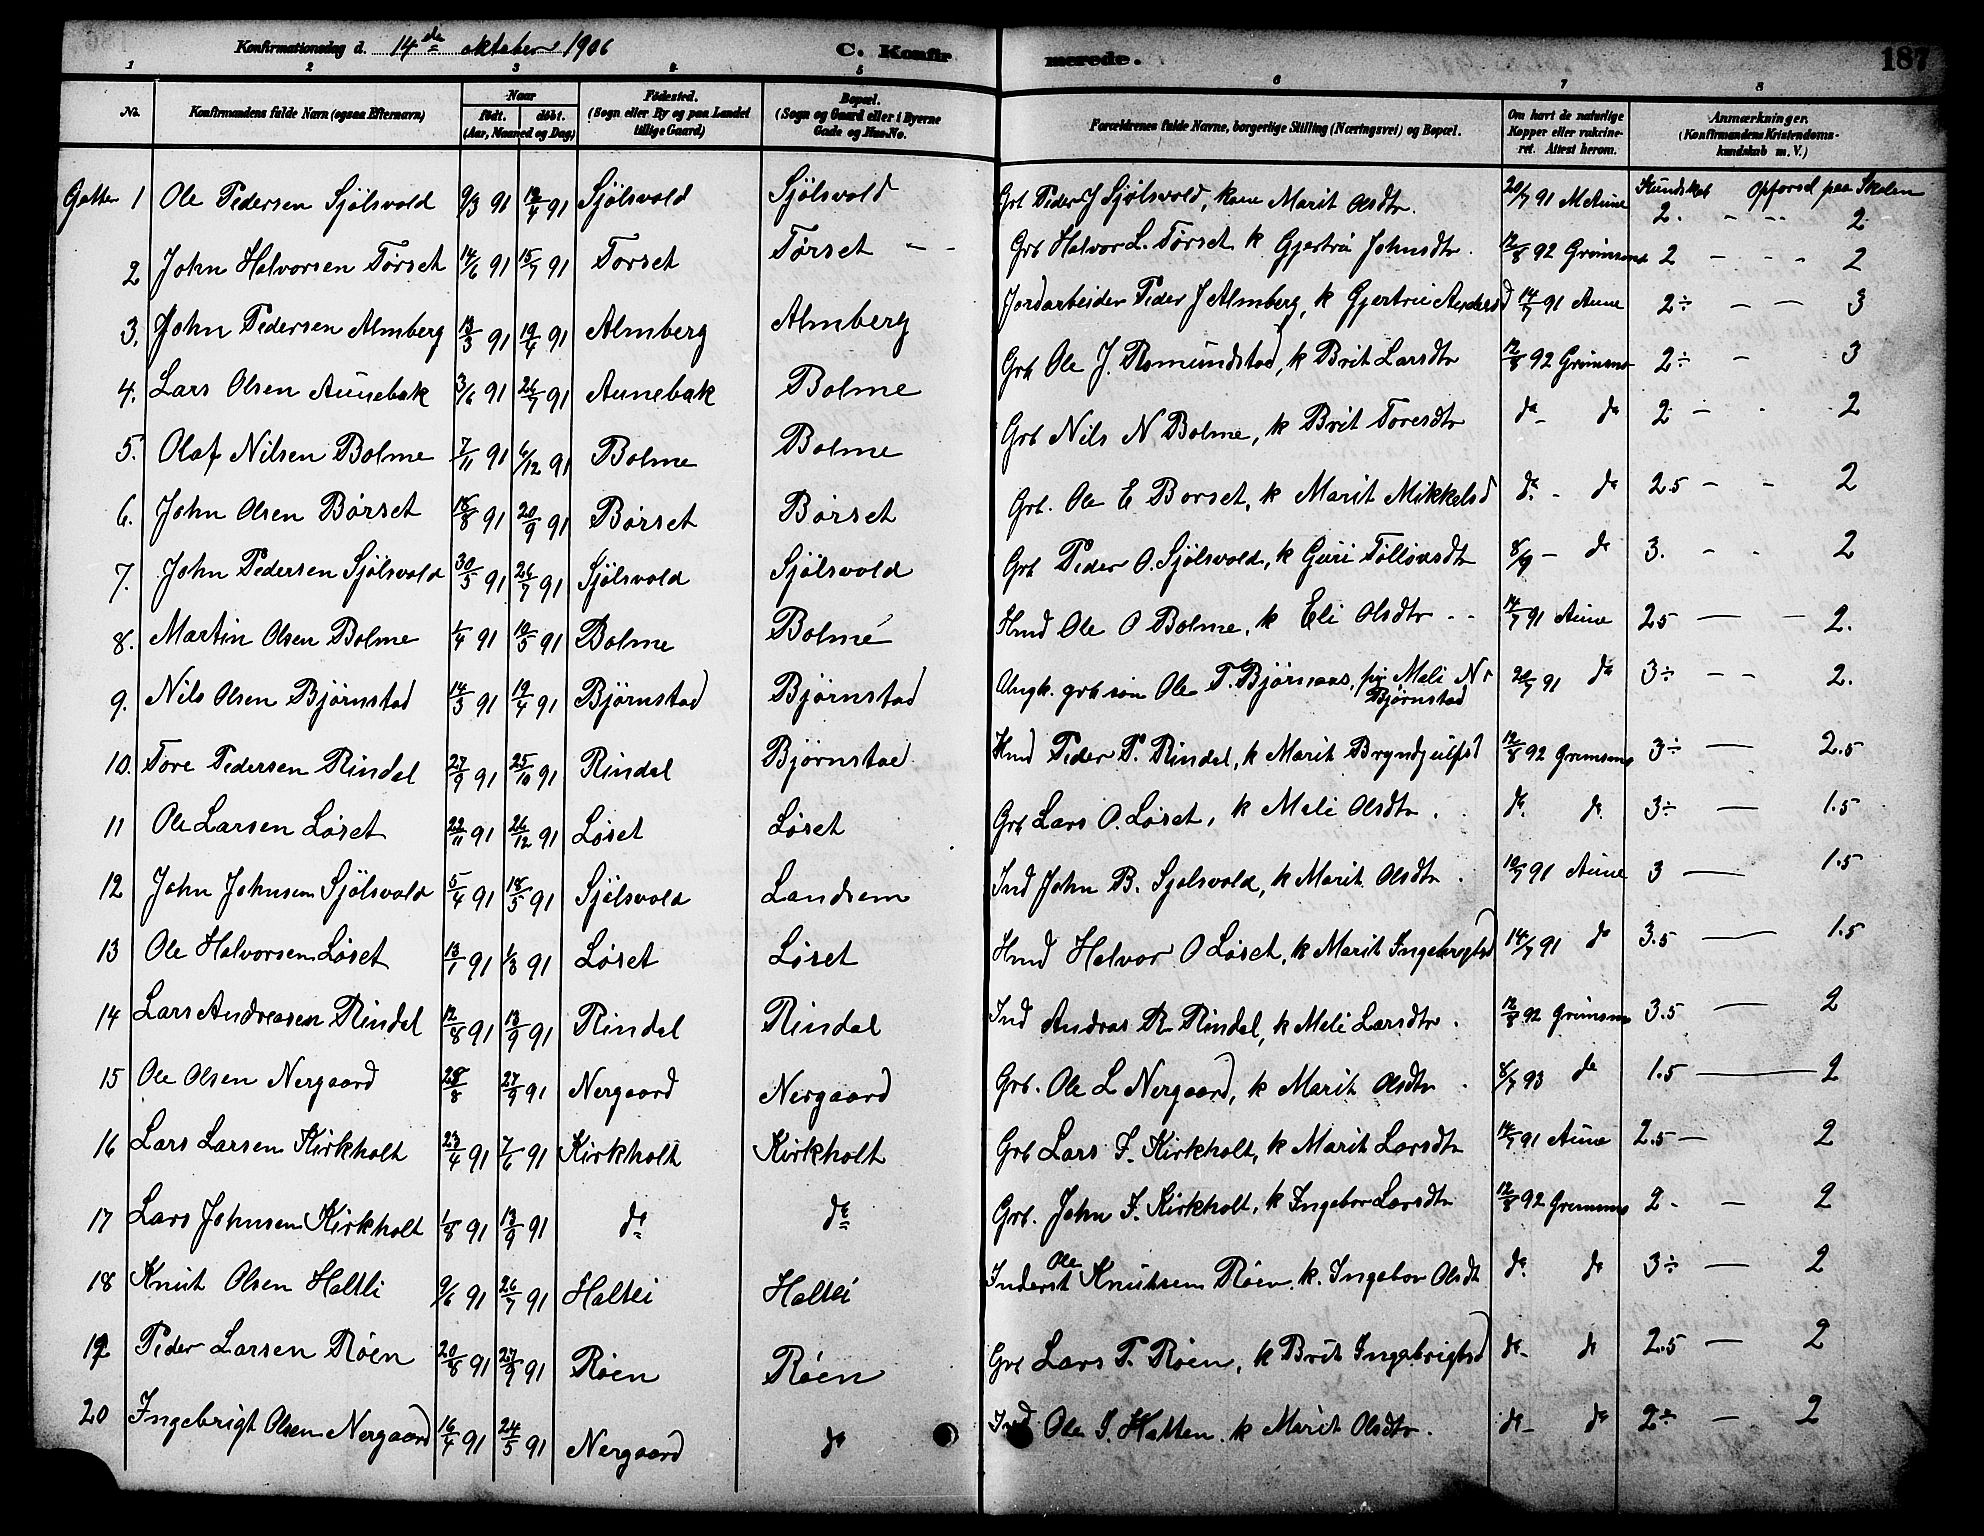 Konfirmationsdag d. 14de oktober 1906 C. Konfirmerede. 187
1 2 3 4 5 6 7 8
No. Konfirmandens fulde Navn (ogsaa Efternavn) Naar født. døbt. (Aar, Maaned og Dag) Fødested. (Sogn eller By og paa Landet tillige Gaard) Bopæl. (Sogn og Gaard eller i Byerne Gade og Hus-No. Forældrenes fulde Navne, borgerlige Stilling (Næringsvei) og Bopæl. Om havt de naturlige Kopper eller vakcineret. Attest herom. Anmærkninger. (Konfirmandens Kristendomskundskab m. V.)
Gutter 1 Ole Pedersen Sjølsvold 9/3 91 12/4 91 Sjølsvold Sjølsvold Grb Peder J Sjølsvold, kone Marit Olsdtr. 20/7 91 M Aune Kundskab 2. - - - Opførsel paa Skolen 2
2 John Halvorsen Tørset 14/6 91 15/7 91 Torset Tørset - - Grb Halvor L. Tørset k Gjertru Johnsdtr. 12/8 92 Grimsmo 2 - - - 2
3. John Pedersen Almberg 13/3 91 19/4 91 Almberg Almberg Jordarbeider Peder J Almberg, k Gjertrue Andersd 14/7 91 Aune 2÷ - - 3
4. Lars Olsen Aunebak 3/6 91 26/7 91 Aunebak Bolme Grb Ole J. Romundstad, k Brit Larsdtr 12/8 92 Grimsmo 2÷ - 3
5. Olaf Nilsen Bolme 7/11 91 6/12 91 Bolme Bolme Grb Nils N Bolme, k Brit Toresdtr do - do 2 - - 2
6. John Olsen Børset 18/8 91 20/9 91 Børset Børset Grb. Ole E Borset, k Marit Mikkelsd do - do 2.5 - - 2
7. John Pedersen Sjølsvold 30/5 91 26/7 91 Sjølsvold Sjølsvold Grb Peder O. Sjølsvold, k Guri Tølløvsdtr 8/9 - do 3. - - 2
8. Martin Olsen Bolme 1/4 91 10/5 91 Bolme Bolme Hmd Ole O Bolme, k Eli Olsdtr - - 14/7 91 Aune 2.5 - - 2.
9. Nils Olsen Bjørnstad 14/3 91 19/4 91 Bjørnstad Bjørnstad Ungk. grb søn Ole T. Bjørnaas, pig Mali N. Bjørnstad 20/7 91 do 3÷ - - 2.
10. Tore Pedersen Rindal 27/9 91 25/10 91 Rindal Bjørnstad Hmd Peder P. Rindal, k Marit Bryndjulfsd 12/8 92 Grimsmo 3÷ - 2.5
11 Ole Larsen Løset 22/11 91 26/12 91 Løset Løset Grb Lars O. Løset, k Mali Olsdtr. do do 3÷ - 1.5
12 John Johnsen Sjølsvold 5/4 91 18/5 91 Sjølsvold Landsem Ind John B. Sjølsvold, k Marit Olsdtr. 10/7 91 Aune 3 - 1.5
13 Ole Halvorsen Løset 13/1 91 1/3 91 Løset Løset Hmd Halvor O Løset, k Marit Ingebrigtsd 14/7 91 do 3.5 - 1.5
14 Lars Andreasen Rindal 12/8 91 13/9 91 Rindal Rindal Ind Andras R Rindal, k Mali Larsdtr. 12/8 92 Grimsmo 3.5 - 2
15 Ole Olsen Nergaard 28/8 27/9 91 Nergaard Nergaard Grb. Ole L Nergaard, k Marit Olsdtr. 8/7 93 do 1.5 - 2
16 Lars Larsen Kirkholt 23/4 91 7/6 91 Kirkholt Kirkholt Grb Lars I. Kirkholt, k Marit Larsdtr 14/7 91 Aune 2.5 - 2
17 Lars Johnsen Kirkholt 1/8 91 13/9 91 do do Grb. John I. Kirkholt, k Ingebor Larsdtr 12/8 92 Grimsmo 2 - - 2
18 Knut Olsen Haltli 9/6 91 26/7 91 Haltli Haltli Inderst Ole Knutsen Røen, k. Ingebor Olsdt do do 3÷ - 2
19 Peder Larsen Røen 20/8 91 27/9 91 Røen Røen Grb Lars P. Røen, k Brit Ingebrigtsd do - do 2.5 - 2
20 Ingebrigt Olsen Nergaard 16/4 91 24/5 91 Nergaard do Ind Ole I. Hatten. k Marit Olsdtr. do - do 2÷ - 2